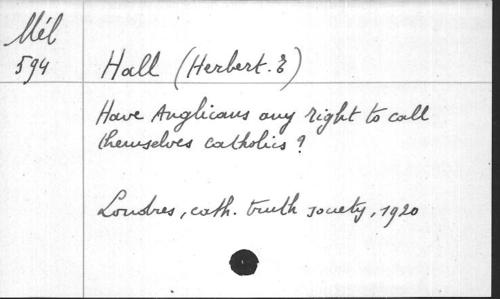 Mél
594
Hall (Herbert. E)
Have Anglicans any right to call
themselves catholics ?
Londres, cath. truth society, 1920